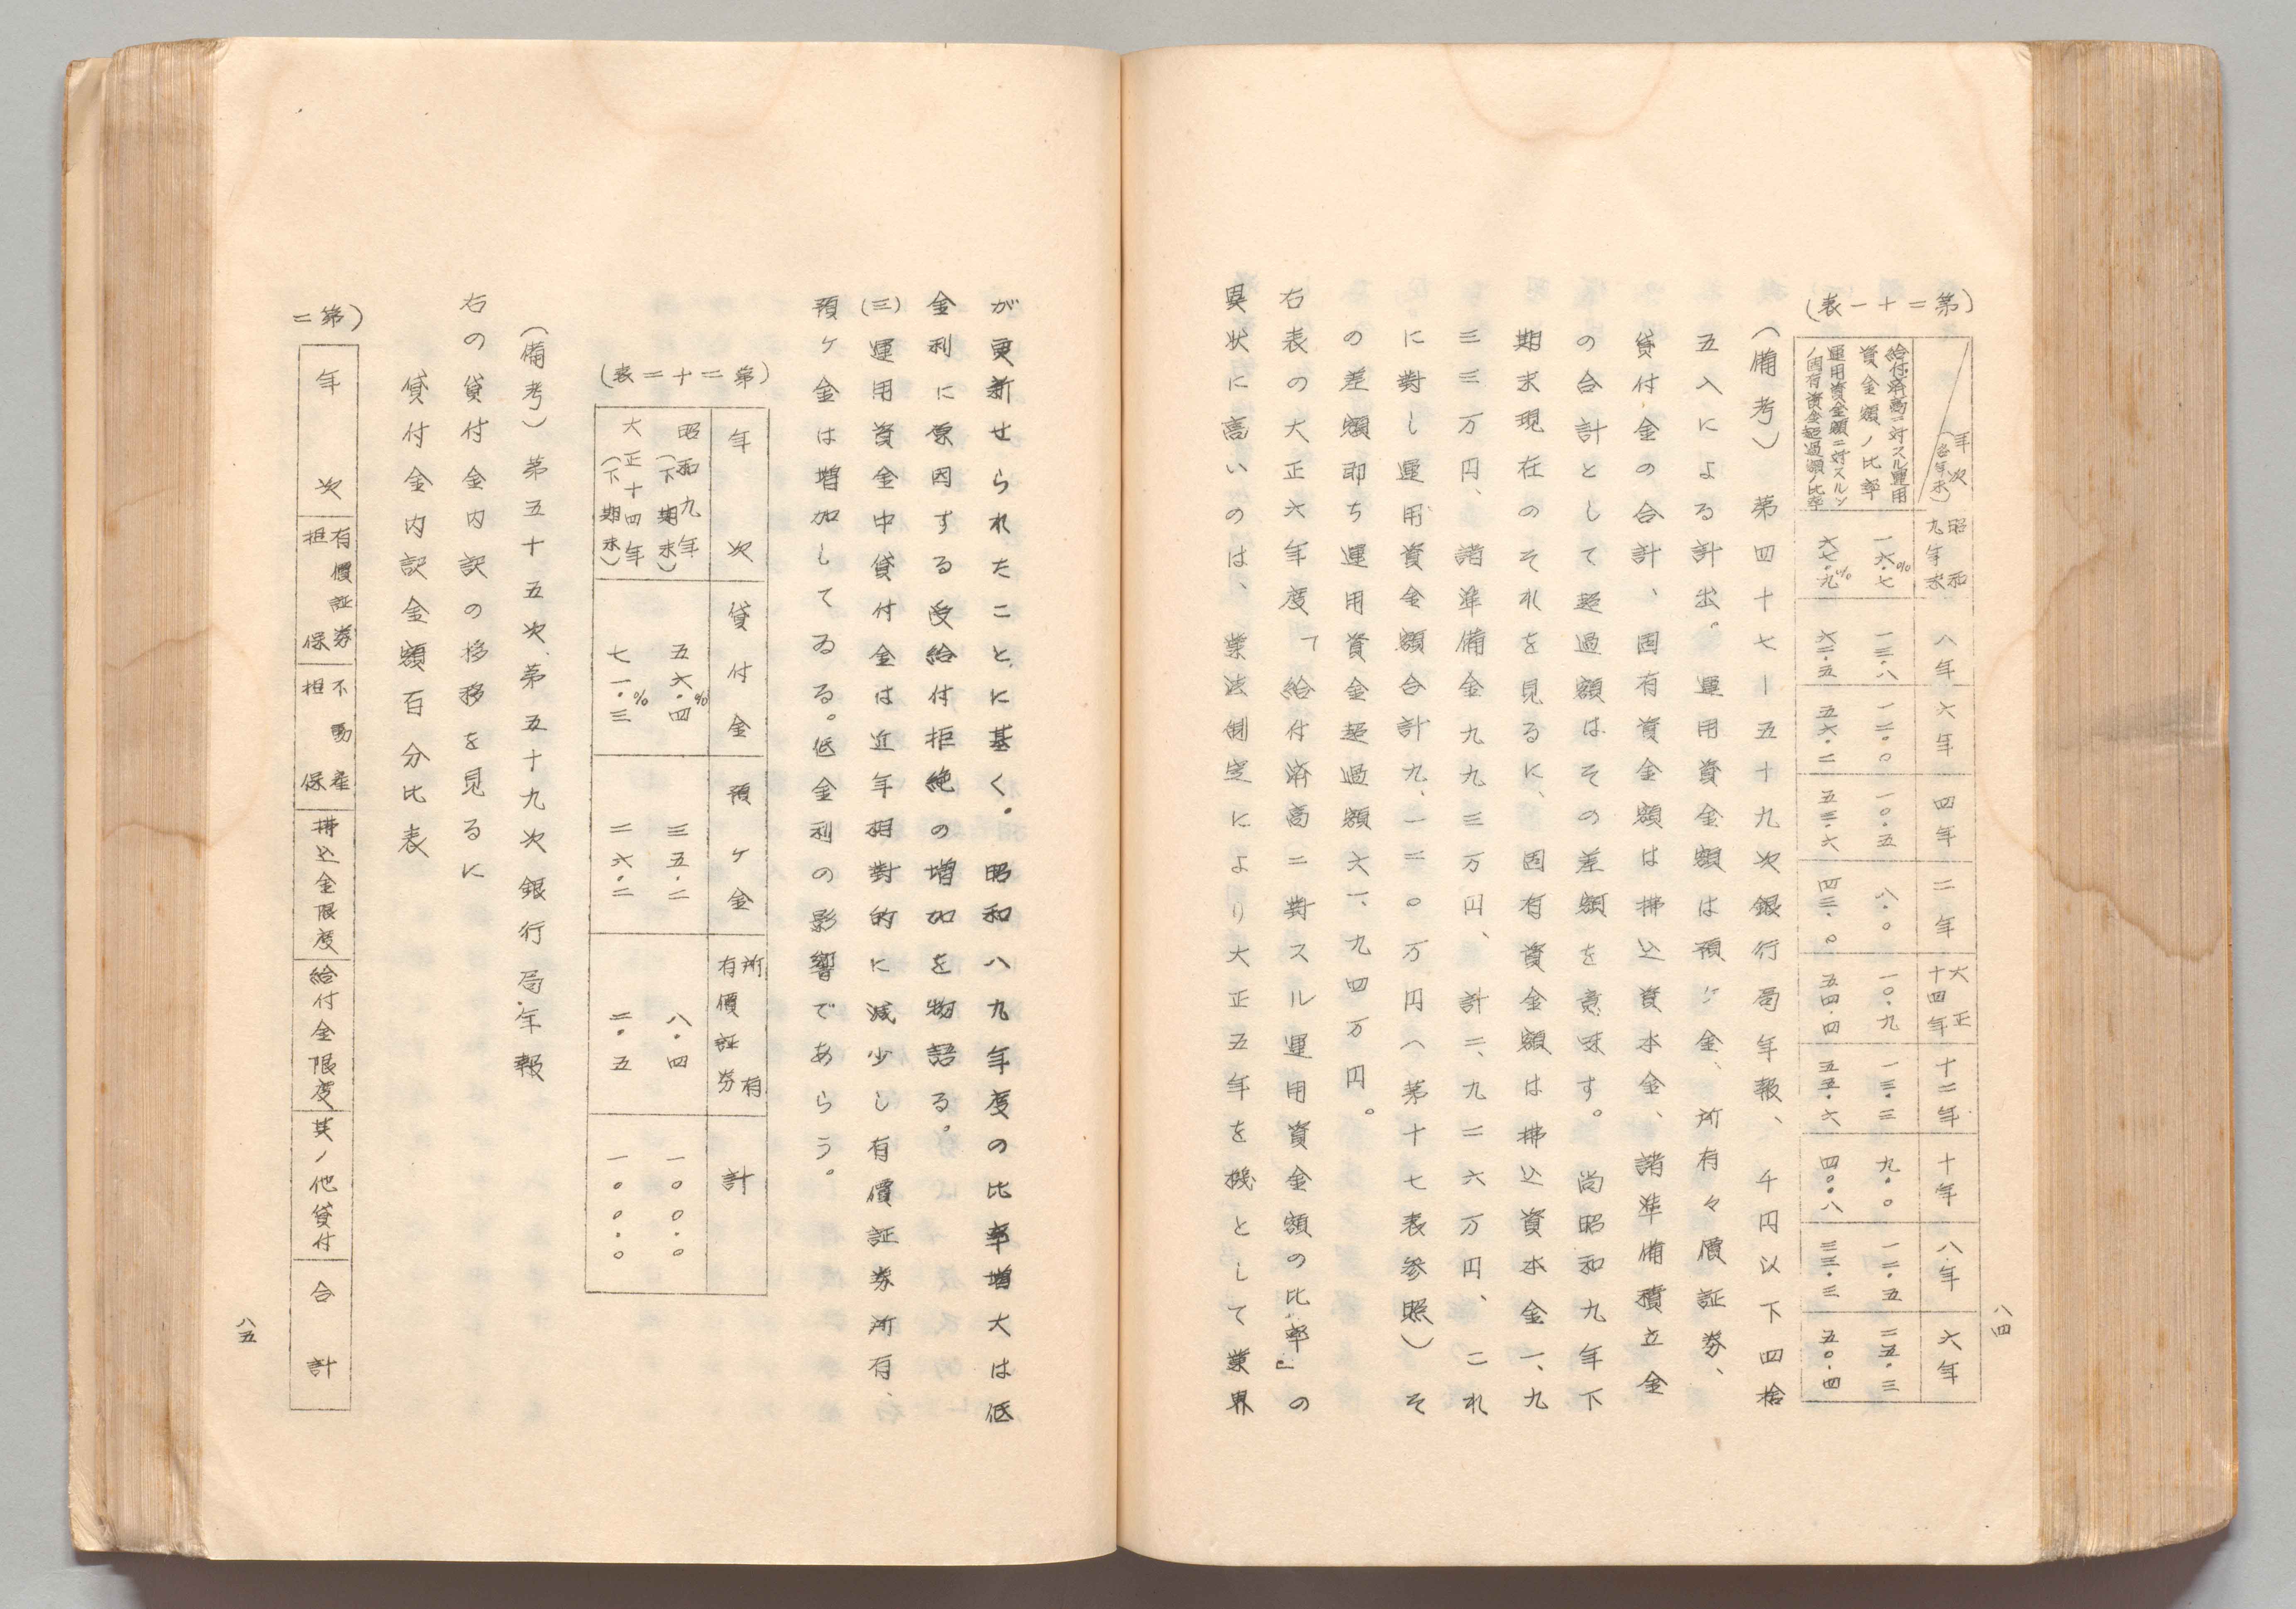 八四
(第二十一表)
年次(各年末)
昭和九年末
八年
六年
四年
二年
大正十四年
十二年
十年
八年
六年
給付済高ニ対スル運用
資金額ノ比率
一六・七%
一三・八
一二・〇
一〇・五
八・〇
一〇・九
一三・三
九・〇
一二・五
二五・三
運用資金額ニ対スルソ
ノ固有資金超過額ノ比率
六七・九%
六二・五
五六・二
五三・六
四三・〇
五四・四
五五・六
四〇・八
三三・三
五〇・四
(備考) 第四十七―五十九次銀行局年報、千円以下四捨
五入による計出。運用資金額は預ヶ金、所有々價証券、
貸付金の合計、固有資金額は拂込資本金、諸準備積立金
の合計として超過額はその差額を意味す。尚昭和九年下
期末現在のそれを見るに、固有資金額は拂込資本金一、九
三三万円、諸準備金九九三万円、計二、九二六万円、これ
に對し運用資金額合計九、一二〇万円(第十七表参照)そ
の差額即ち運用資金超過額六一、九四万円。
右表の大正六年度「給付済高ニ對スル運用資金額の比率』の
異状に高いのは、業法制定により大正五年を機として業界
が更新せられたことに基く。昭和八九年度の比率増大は低
金利に原因する受給付拒絶の増加を物語る。
(三)運用資金中貸付金は近年相對的に減少し有價証券所有、
預ヶ金は増加してゐる。低金利の影響であらう。
(第二十二表)
年次
貸付金
預ヶ金
所有有價証券
計
昭和九年(下期末)
五六・四%
三五・二
八・四
一〇〇・〇
大正十四年(下期末)
七一・三%
二六・二
二・五
一〇〇・〇
(備考)第五十五次、第五十九次銀行局年報
右の貸付金内訳の移移を見るに
貸付金内訳金額百分比表
(第二
年次
有價証券担保
不動産担保
拂込金限度
給付金限度
其ノ他貸付
合計
八五